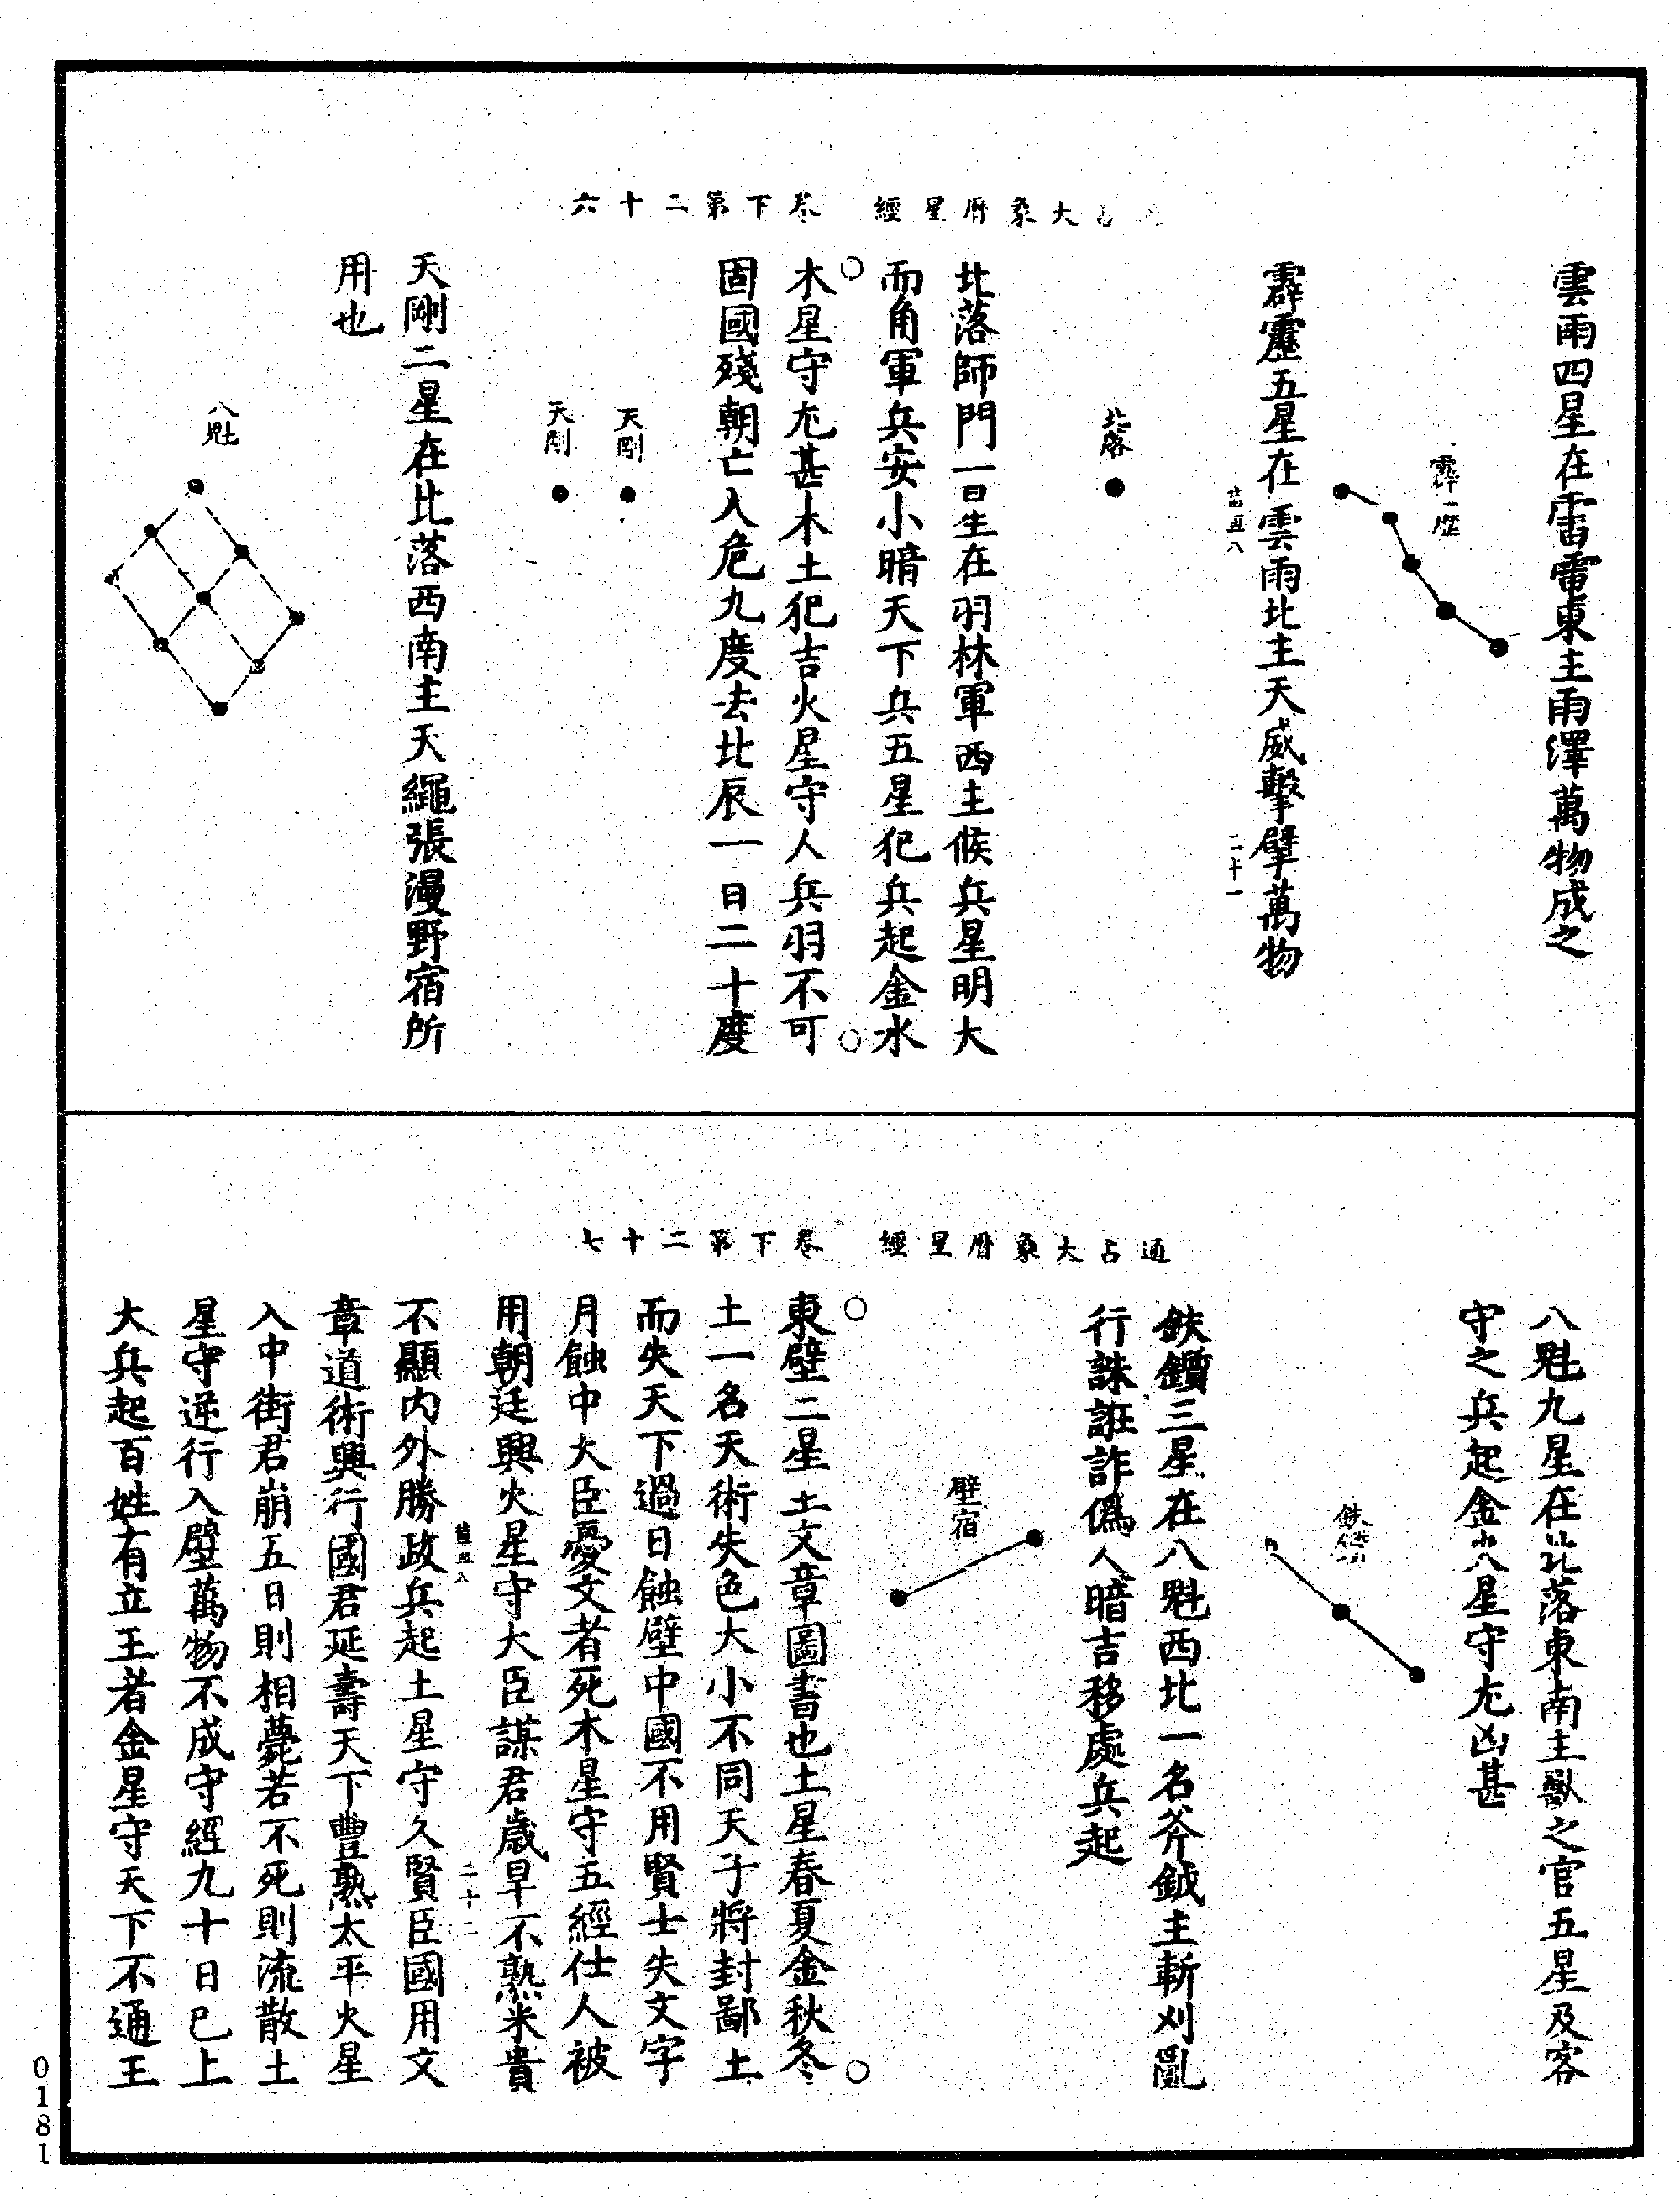 占大象曆星經 卷下第二十六
雲雨四星在雷電東主雨澤萬物成之
霹歷
霹靂五星在雲雨北主天威擊擘萬物
二十一
北落
北落師門一星在羽林軍西主候兵星明大
而角軍兵安小暗天下兵五星犯兵起金水
木星守尤甚木土犯吉火星守人兵羽不可
固國殘朝亡入危九度去北辰一百二十度
天剛
天剛
天剛二星在北落西南主天繩張漫野宿所
用也
八魁
通占大象曆星經 卷下第二十七
八魁九星在北落東南主獸之官五星及客
守之兵起金火星守尤凶甚
鈇鑕
鈇鑕三星在八魁西北一名斧鉞主斬刈亂
行誅誑詐偽人暗吉移處兵起
壁宿
東壁二星土文章圖書也土星春夏金秋冬
土一名天術失色大小不同天子將封鄙土
而失天下過日蝕壁中國不用賢士失文字
月蝕中大臣憂文者死木星守五經仕人被
用朝廷興火星守大臣謀君歲旱不熟米貴
二十二
不顯內外勝政兵起土星守久賢臣國用文
章道術興行國君延壽天下豐熟太平火星
入中街君崩五日則相薨若不死則流散土
星守逆行入壁萬物不成守經九十日已上
大兵起百姓有立王者金星守天下不通王
0181